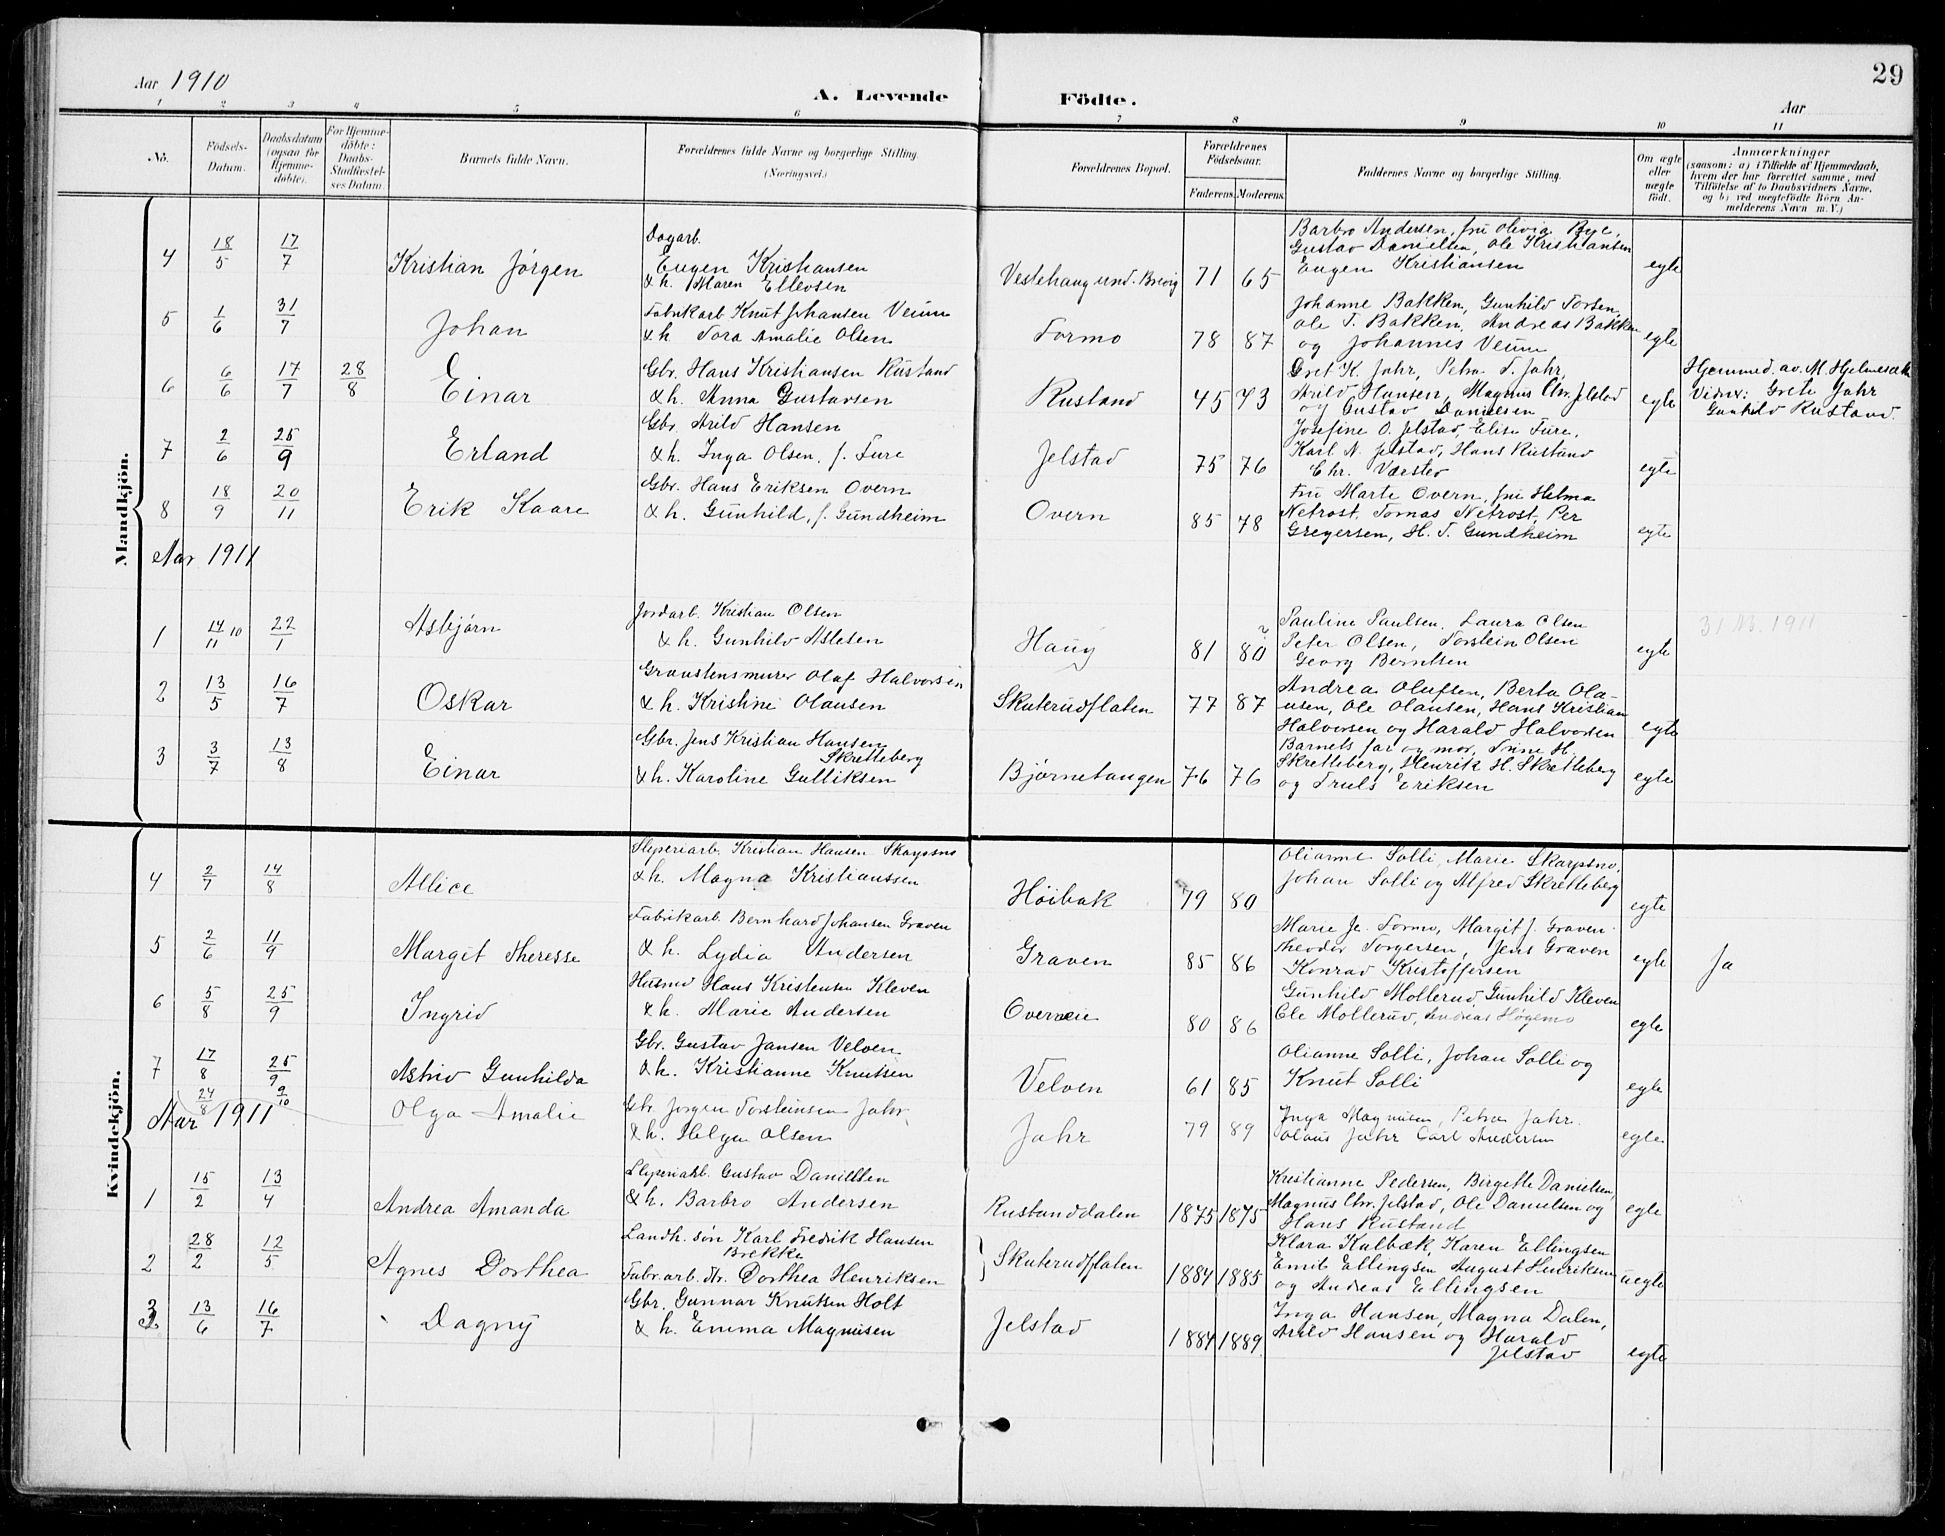 Aar 1910
A. Levende Födte.
Aar
29
1 2 3 4 5 6 7 8 9 10 11
No.
Födsels-Datum.
Daabsdatum (ogsaa for Hjemme-döbte).
For Hjemme-döbte: Daabs-Stadfæstel-ses Datum.
Barnets fulde Navn.
Forældrenes fulde Navne og borgerlige Stilling. (Næringsvei.)
Forældrenes Bopæl.
Forældrenes Födselsaar.
Faderens. Moderens.
Faddernes Navne og borgerlige Stilling.
Om ægte eller uægte födt.
Anmærkninger
(saasom: a) i Tilfælde af Hjemmedaab, hvem der har forrettet samme, med Tilföielse af to Daabsvidners Navne, og b) ved uægtefödte Börn Anmelderens Navn m. V.)
Mandkjön.
4 18/5 17/7 Kristian Jørgen
Dagarb.
Eugen Kristiansen
& h. Maren Ellevsen
Vestehaug und. Brevig 71 65
Barbro Andersen, fru Olivia Bye,
Gustav Danielsen, Ole Kristiansen
Eugen Kristiansen
egte
5 1/6 31/7 Johan
Fabrikarb Knut Johansen Veium
& h. Tora Amalie Olsen
Formo 78 87
Johanne Bakken, Gunhild Torsen,
Ole T. Bakken, Andreas Bakken
og Johannes Veium
egte
6 6/6 17/7 28/8 Einar
Gbr. Hans Kristiansen Rustand
& h. Anna Gustavsen
Rustand 45 73
Gret K. Jahr, Petra T. Jahr,
Arild Hansen, Magnus Chr. Jelstad
og Gustav Danielsen
egte
Hjemmed. av M. Hjelmesæth
Vidnr: Grete Jahr
Gunhild Rustand.
7 2/6 25/9 Erland
Gbr. Arild Hansen
& h. Inga Olsen, f. Ture
Jelstad 75 76
Josefine O. Jelstad, Elise Ture,
Karl N. Jelstad, Hans Rustand
Chr. Værsted
egte
8 18/9 20/11 Erik Kaare
Gbr. Hans Eriksen Overn
& h. Gunhild, f. Gundheim
Overn 85 78
Fru Marte Overn, fru Helma
Nefrost, Tomas Nefrost, Per
Gregersen, H. T. Gundheim
egte
Aar 1911
1 14/11 10 22/1 Asbjørn
Jordarb. Kristian Olsen
& h. Gunhild Aslesen
Haug 81 80
Pauline Paulsen, Laura Olsen
Peter Olsen, Torstein Olsen
Georg Berntsen
egte
2 13/5 16/7 Oskar
Graastensmurer Olaf Halvorsen
& h. Kristine Olausen
Skuterudflaten 77 87
Andrea Olufsen, Berta Ola-
usen, Ole Olausen, Hans Kristian
Halvorsen og Harald Halvorsen
egte
3 3/7 13/8 Einar
Gbr. Jens Kristian Hansen
Skretteberg
& h. Karoline Gulliksen
Bjørnetangen 76 76
Barnets far og mor, Trine H.
Skretteberg, Henrik H. Skretteberg
og Truls Eriksen
egte
Kvindekjön.
4 2/7 14/8 Allice
Sliperiarb. Kristian Hansen Skarpsno
& h. Magna Kristianssen
Høibak 79 80
Olianne Solli, Marie Skarpsno,
Johan Solli og Alfred Skretteberg
egte
5 2/6 11/9 Margit Theresse
Fabrikarb. Bernhard Johansen Graven
& h. Lydia Andersen
Graven 85 86
Marie Je. Formo, Margit J. Graven
Theodor Torgersen, Jens Graven
Konrad Kristoffersen
egte
Ja
6 5/8 25/9 Ingrid
Husmd Hans Kristensen Kleven
& h. Marie Andersen
Overneie 80 86
Gunhild Mollerud, Gunhild Kleven
Ole Mollerud, Andreas Høgemo
egte
7 17/8 25/9 Astrid Gunhilda
Gbr. Gustav Jansen Velven
& h. Kristianne Knutsen
Velven 61 85
Olianne Solli, Johan Solli og
Knut Solli
egte
24/8 9/10 Olga Amalie
Gbr. Jørgen Torsteinsen Jahr
& h. Helga Olsen
Jahr 79 89
Inga Magnusen, Petra Jahr
Olaus Jahr Carl Andersen
egte
Aar 1911
1 15/2 13/4 Andrea Amanda
Sliperiarb. Gustav Danielsen
& h. Barbro Andersen
Rustanddalen 1875 1875
Kristianne Pedersen, Birgette Danielsen,
Magnus Chr. Jelstad, Ole Danielsen og
Hans Rustand
egte
2 28/2 12/5 Agnes Dorthea
Landh. søn Karl Fredrik Hansen
Brekke
Fabr.arb. dtr. Dorthea Henriksen
Skuterudflaten 1884 1885
Klara Kulbæk, Karen Ellingsen
Emil Ellingsen August Henriksen
og Andreas Ellingsen
uegte
3 13/6 16/7 Dagny
Gbr. Gunnar Knutsen Holt
& h. Emma Magnusen
Jelstad 1884 1889
Inga Hansen, Magna Dalen,
Arild Hansen og Harald
Jelstad
egte